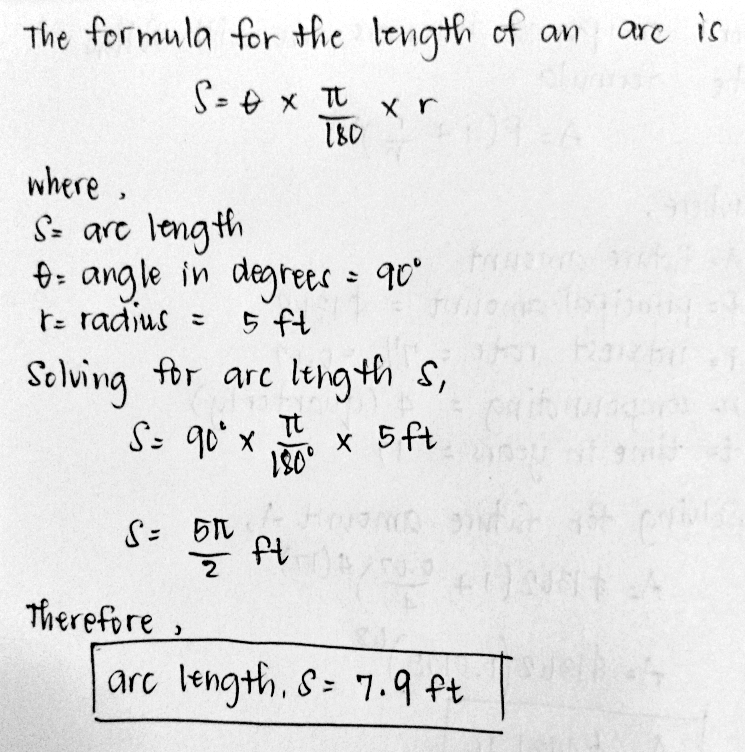 The formula for the length of an arc is
S = θ × π/180 × r
where,
S = arc length
θ = angle in degrees = 90°
r = radius = 5 ft
Solving for arc length S,
S = 90° × π/180° × 5ft
S = 5π/2 ft
Therefore,
arc length, S = 7.9 ft